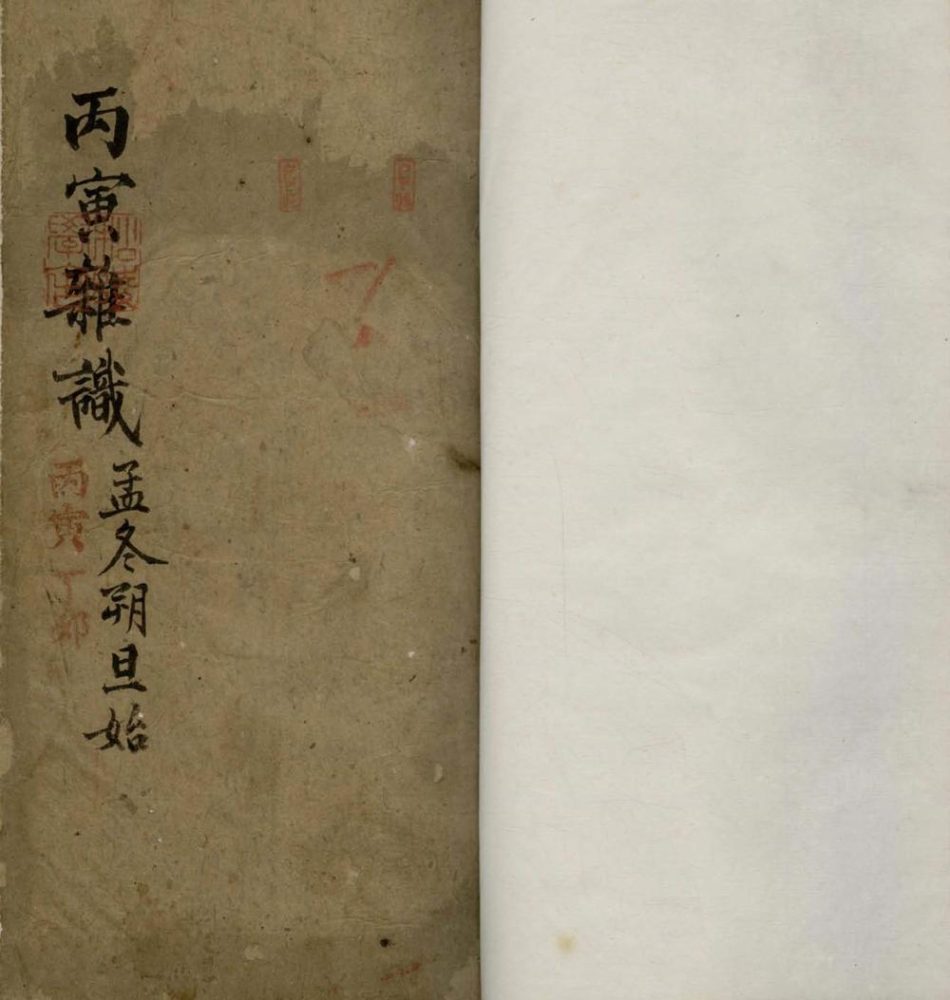 丙寅雜識
孟冬朔旦始
丙寅丁卯